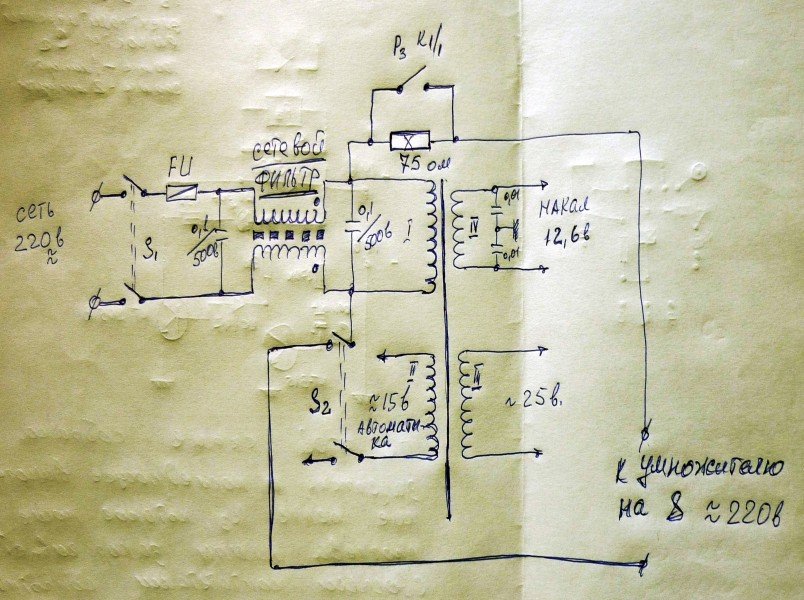 P₃ K1/1
75 ом
FU
сетевой
фильтр
сеть
220 в
≈
S₁
0,1/500в
0,1/500в
I
IV
0,01
0,01
НАКАЛ
12,6 в
S₂
≈15 в
АВТОМАТИ-
КА
II
III
~25 в.
К умножителю
на ≈ 220 в